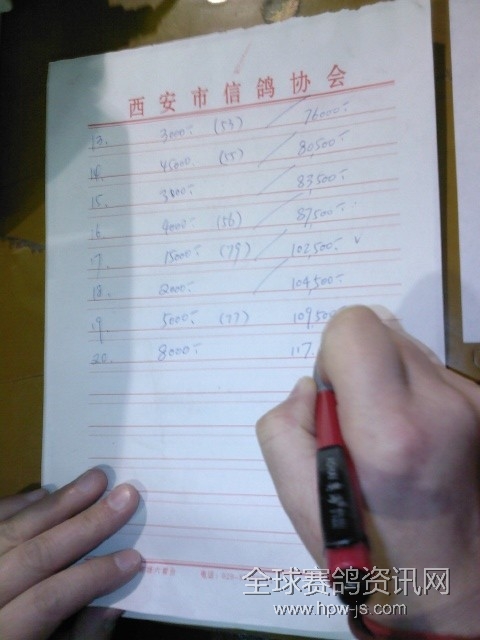 西安市信鸽协会
13. 3000 (53) 76000
14. 45000 (55) 80500
15. 3000 83,500
16. 4000 (56) 87,500
17. 15000 (79) 102,500 √
18. 2000 104,500
19. 5000 (77) 109,500
20. 8000 117.
电话:029-
全球赛鸽资讯网
www.hpw-js.com